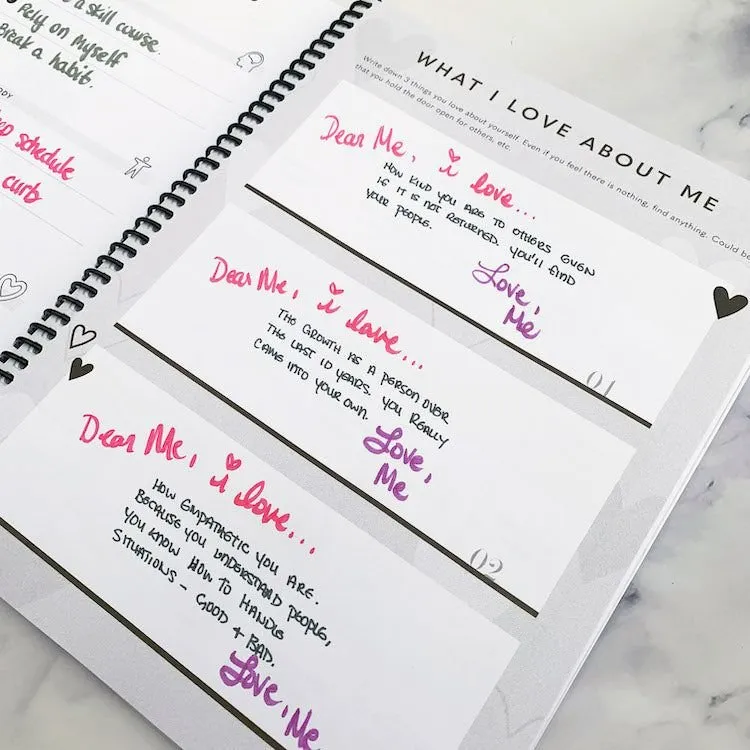 a skill course.
Rely on Myself
Break a habit.
schedule
curb
WHAT I LOVE ABOUT ME
Write down 3 things you love about yourself. Even if you feel there is nothing, find anything. Could be
that you hold the door open for others, etc.
Dear Me, i love...
HOW KIND YOU ARE TO OTHERS EVEN
IF IT IS NOT RETURNED. YOU'LL FIND
YOUR PEOPLE.
Love,
Me
01
Dear Me, i love...
THE GROWTH AS A PERSON OVER
THE LAST 10 YEARS. YOU REALLY
CAME INTO YOUR OWN.
Love,
Me
02
Dear Me, i love...
HOW EMPATHETIC YOU ARE.
BECAUSE YOU UNDERSTAND PEOPLE,
YOU KNOW HOW TO HANDLE
SITUATIONS - GOOD + BAD.
Love, Me